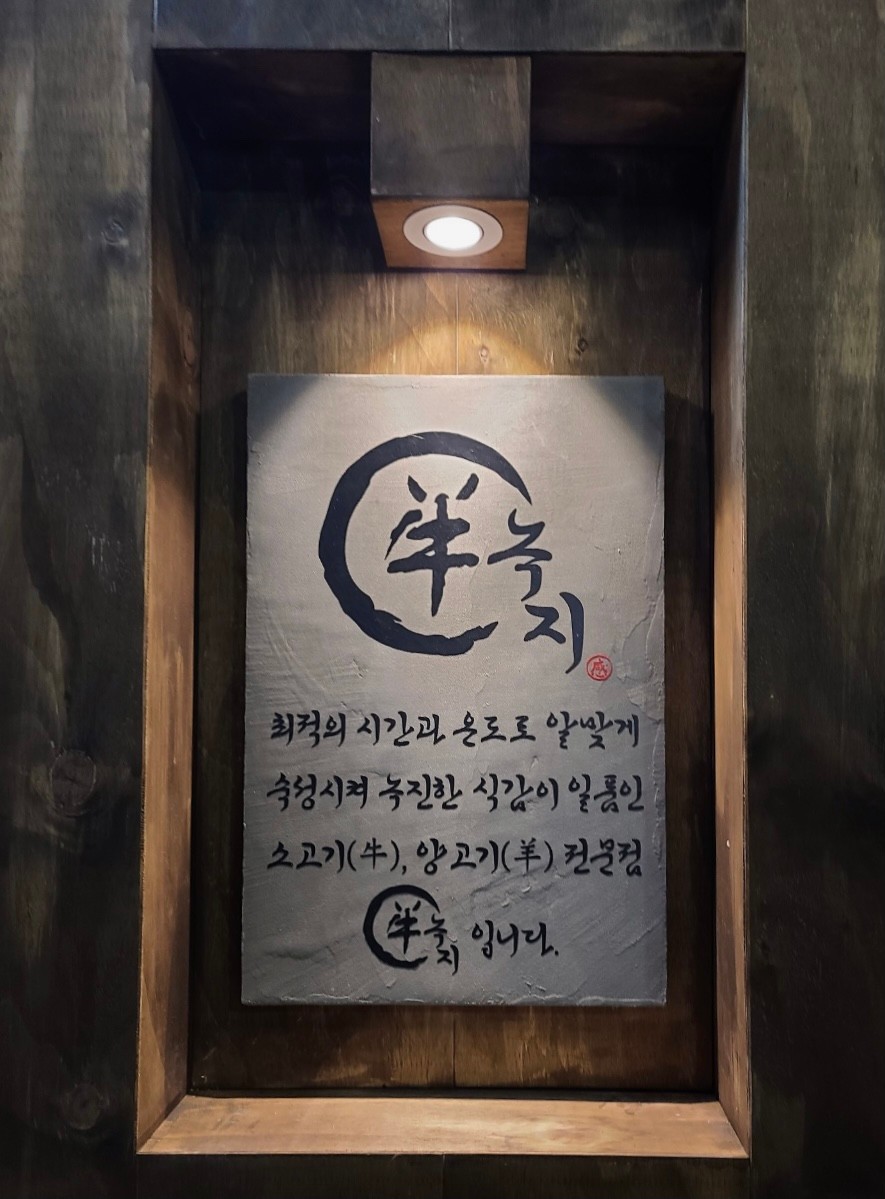 牛녹지
최적의 시간과 온도로 알맞게
숙성시켜 녹진한 식감이 일품인
소고기(牛), 양고기(羊) 전문점
牛녹지 입니다.